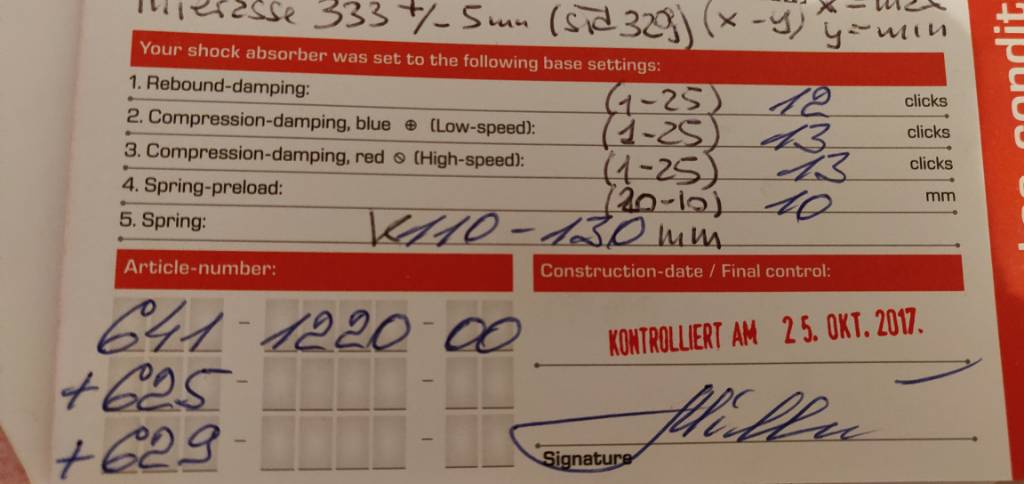 Interasse 333 +/- 5mm (std 329) (x-y) x = max
y = min
Your shock absorber was set to the following base settings:
1. Rebound-damping: (1-25) 12 clicks
2. Compression-damping, blue ⊕ (Low-speed): (1-25) 13 clicks
3. Compression-damping, red ⦸ (High-speed): (1-25) 13 clicks
4. Spring-preload: (20-10) 10 mm
5. Spring: K110-130 mm
Article-number:
641 - 1220 - 00
+625 - -
+629 - -
Construction-date / Final control:
KONTROLLIERT AM 25. OKT. 2017.
Signature